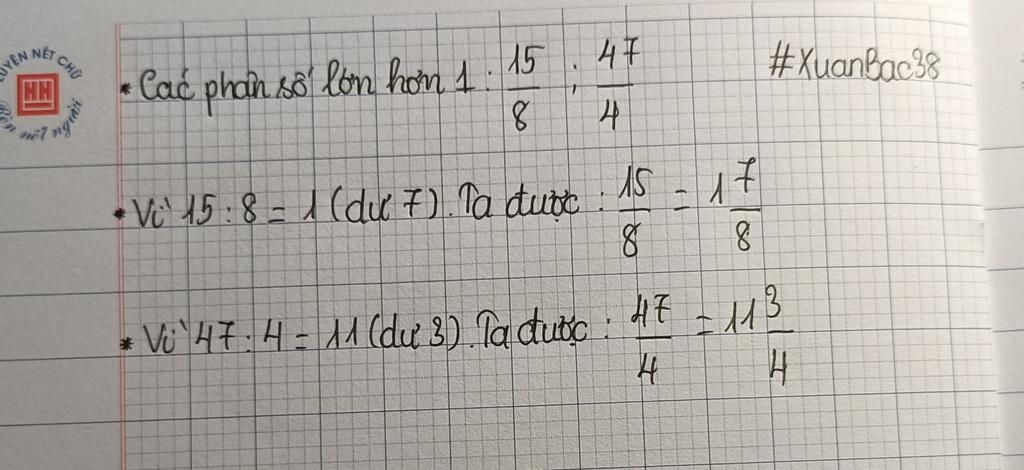 LUYỆN NÉT CHỮ
HH
rèn nết người
* Các phân số lớn hơn 1 : 15/8 ; 47/4 #XuanBac38
* Vì 15 : 8 = 1 (dư 7). Ta được : 15/8 = 1 7/8
* Vì 47 : 4 = 11 (dư 3). Ta được : 47/4 = 11 3/4